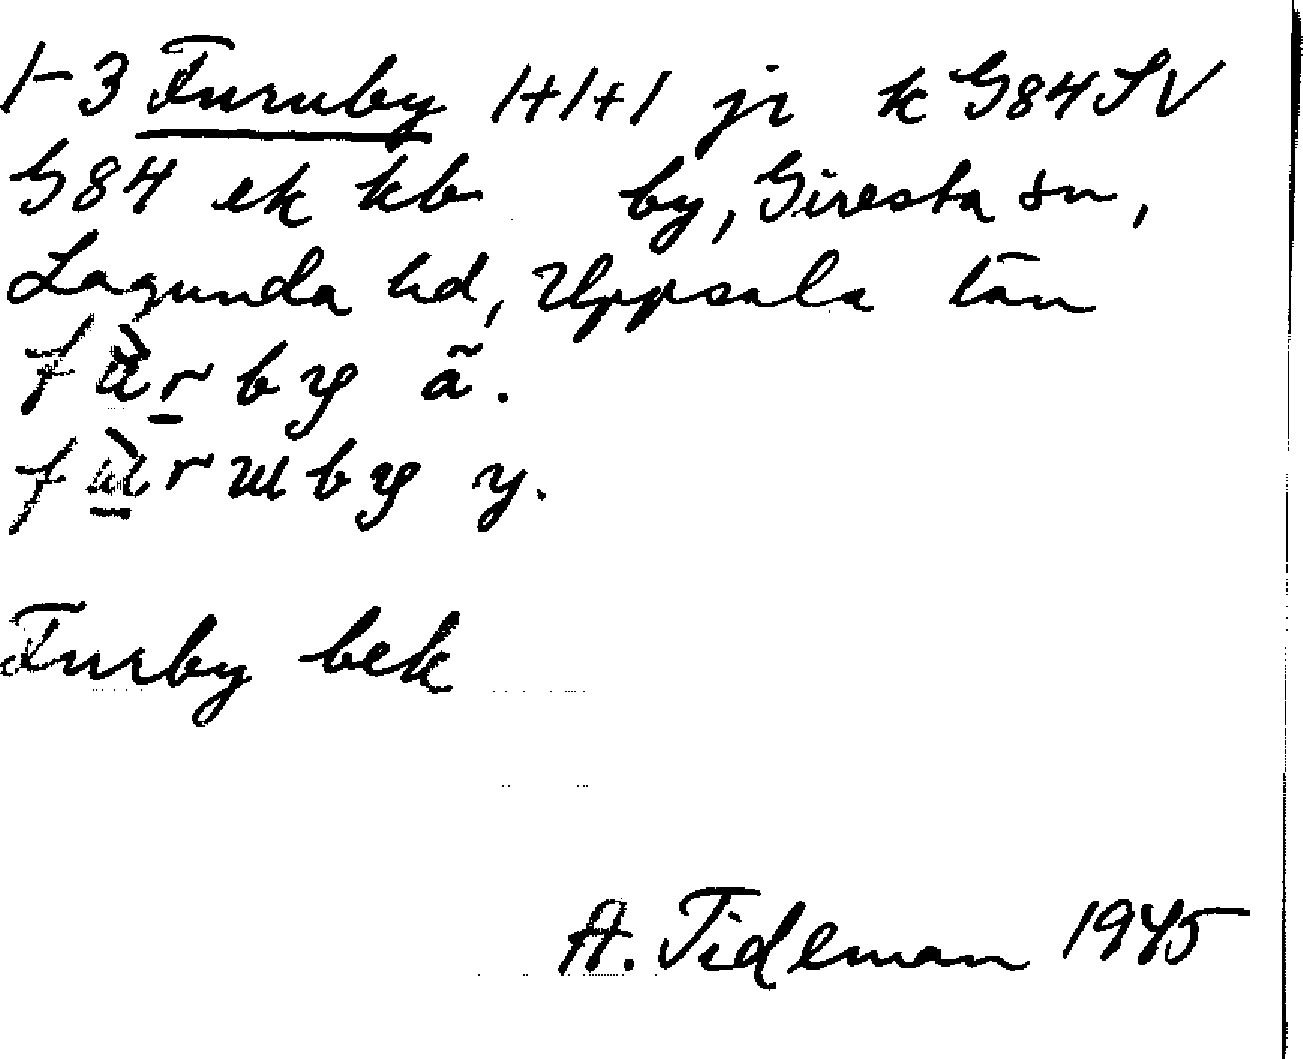 1-3 Furuby 1+1+1 jr k G84SV
G84 ek kb by, Giresta sn,
Lagunda hd, Uppsala län
fùrby ã.
fùrub y.
Furby bek
A. Tideman 1945